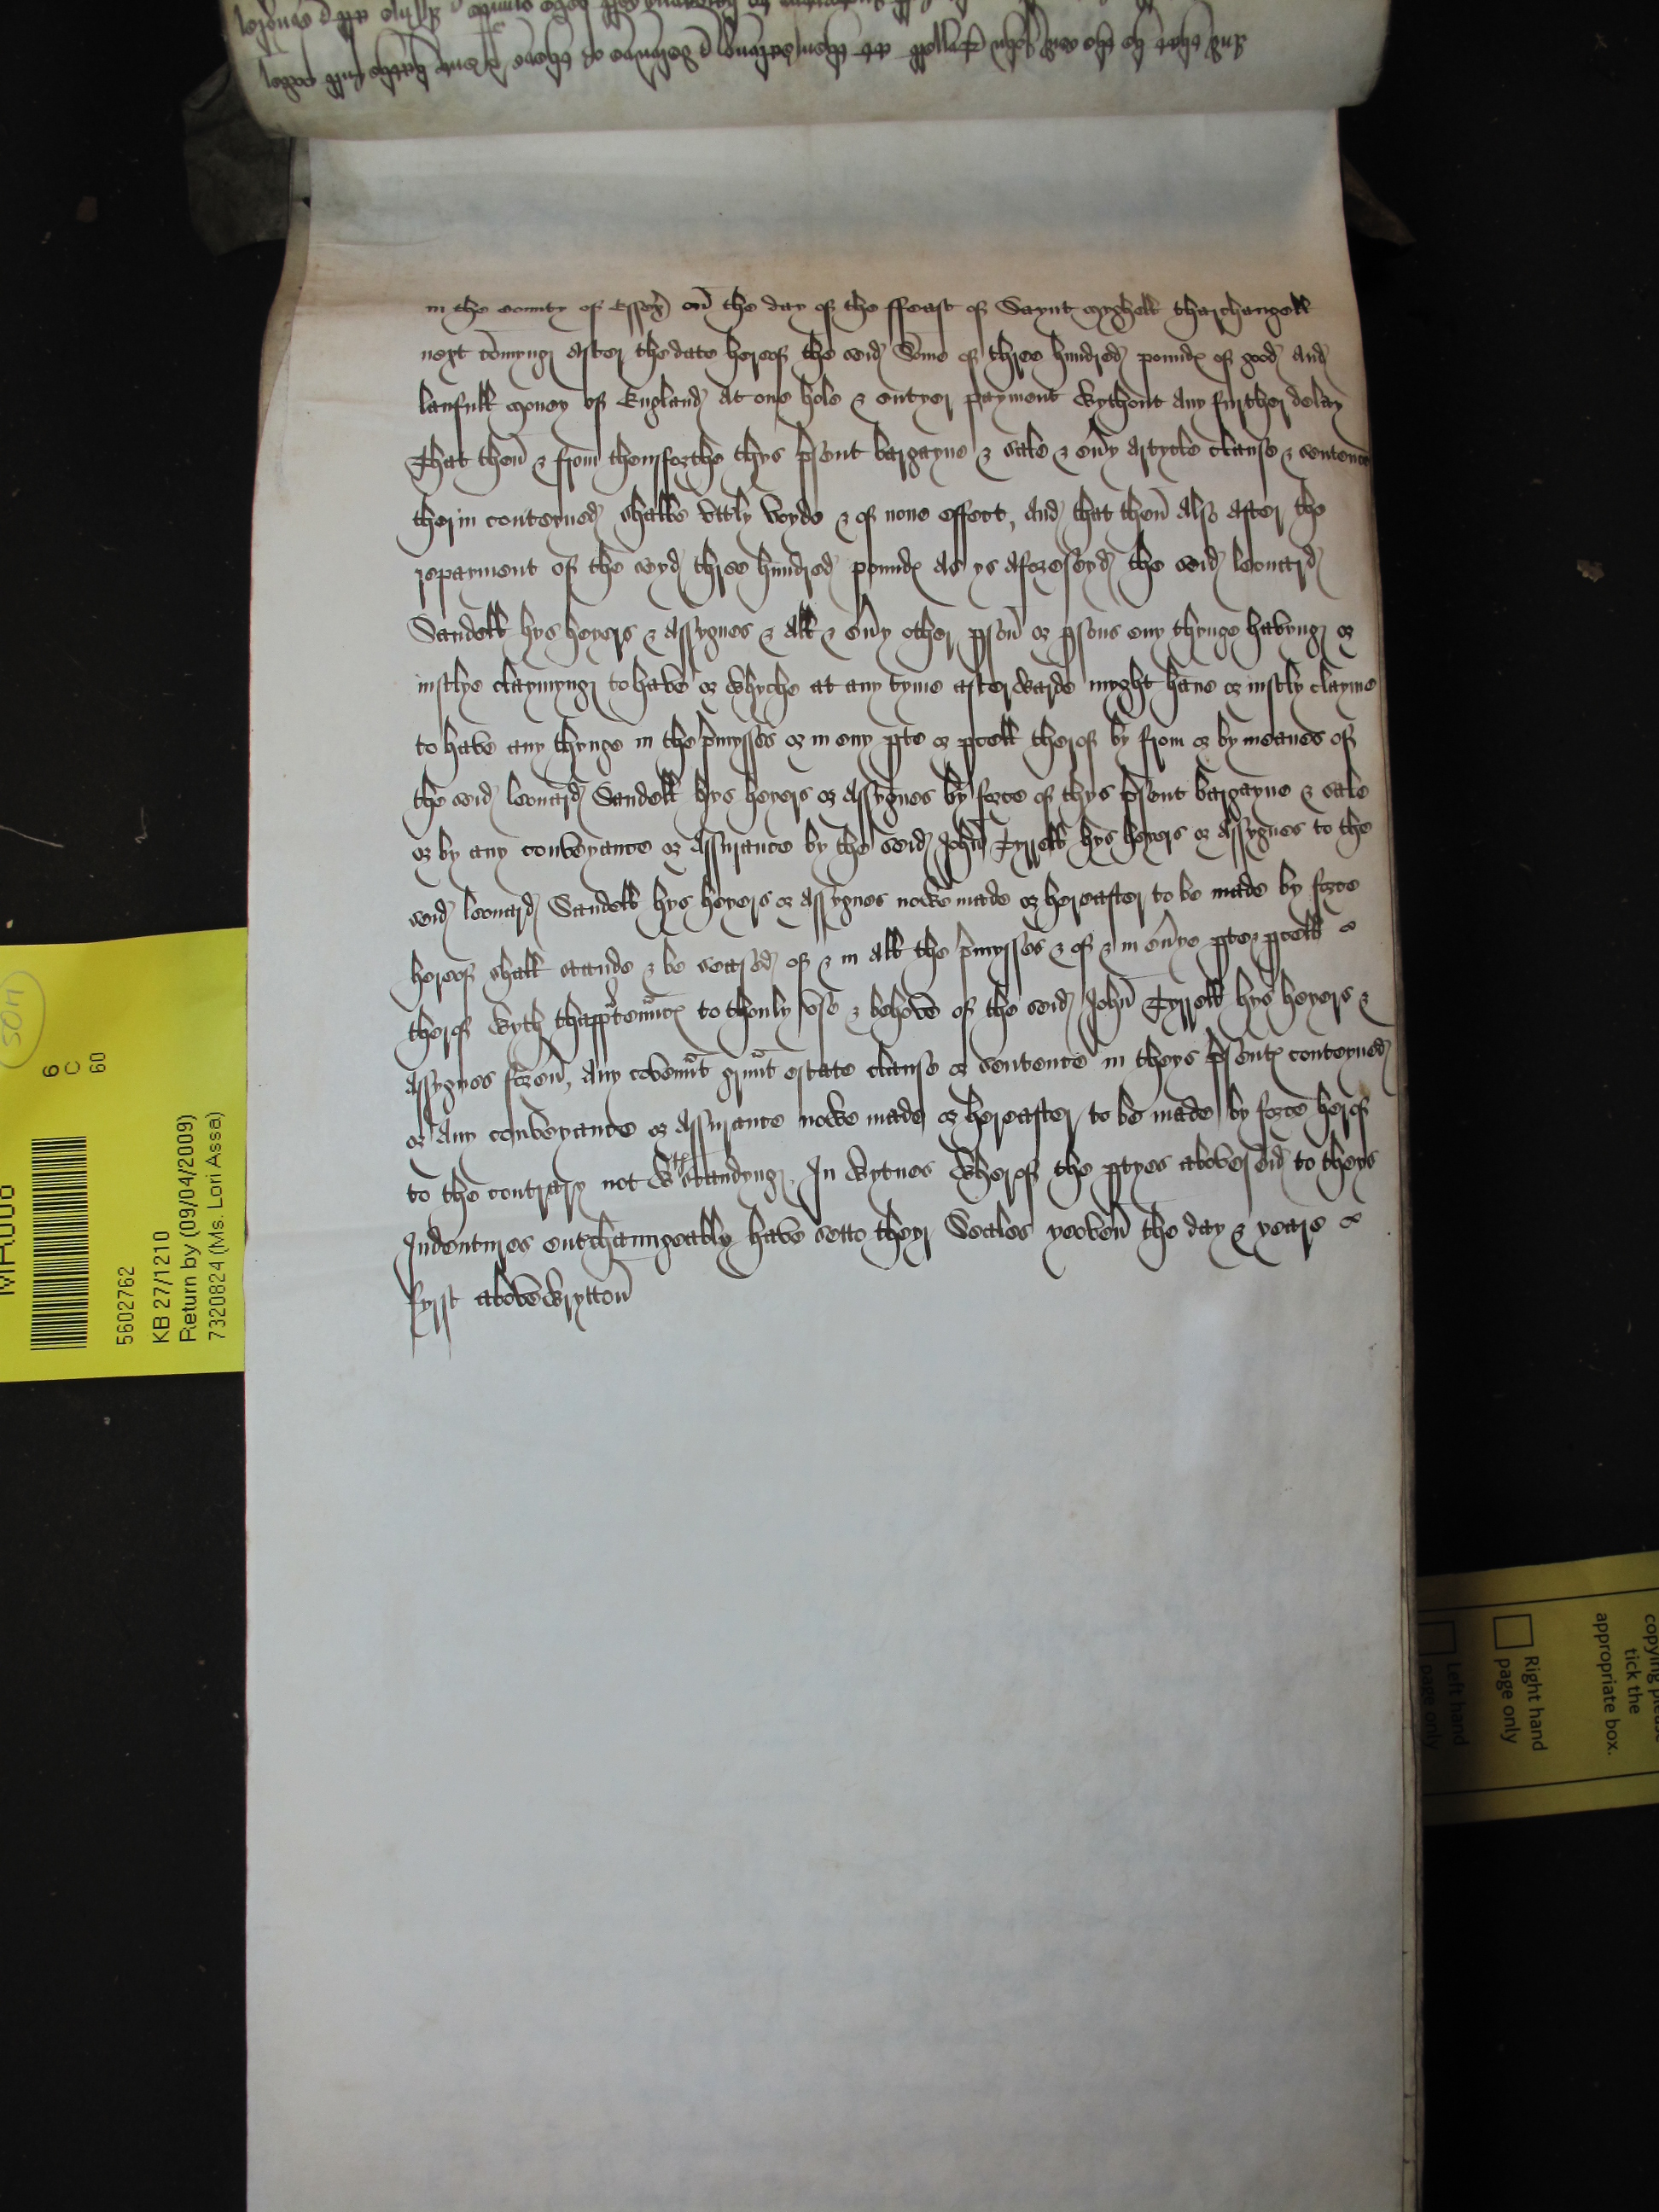 in the county of Essex on the day of the ffeast of Saynt Myghell tharchangell
next comyng after the date hereof the seid Some of three hundred pound of good and
laufull money of England at one hole & entyer payment wythout any further delay
That then & from thensforthe thys psent bargayne & sale & eny artycle clause & sentence
therin conteyned shalbe uttly voyde & of none effect, And that then also after the
repayment of the seyd three hundred pound as ys aforeseyd the seid leonard
Sandell hys heyers & assygnes & all & eny other pson or psons eny thynge havyng or
justlye claymyng to have or whyche at any tyme afterwarde myght have or justly clayme
to have any thynge in the pmysses or in eny pte or pcell therof by from or by meanes of
the seid leonard Sandell hys heyers or assygnes by force of thys psent bargayne & sale
or by any conveyance or assurance by the seid John Tyrrell hys heyers or assygnes to the
seid leonard Sandell hys heyers or assygnes nowe made or hereafter to be made by force
hereof shall stande & be seased of & in all the pmysses & of & in evye pte & pcell
therof wyth thapptennc to thonly use & behove of the seid John Tyrrell hys heyers &
assygnes forev, Any covennt grnnt estate clause or sentence in theys psent conteyned
or any conveyance or assurance nowe made or hereafter to be made by force herof
to the contrary not wtstandyng. In wytnes wherof the ptyes aboveseid to theys
Indentures entchaungeably have setto theyr Seales yeoven the day & yeare
fyrst abovewrytton
5602762
KB 27/1210
Return by (09/04/2009)
7320824 (Ms. Lori Assa)
6
C
60
SON
tick the
appropriate box.
Right hand
page only
Left hand
page only